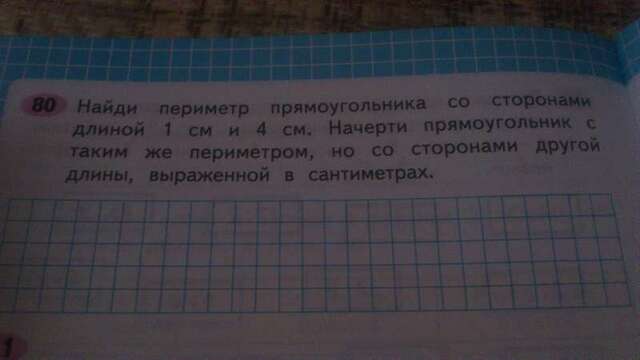 80 Найди периметр прямоугольника со сторонами
длиной 1 см и 4 см. Начерти прямоугольник с
таким же периметром, но со сторонами другой
длины, выраженной в сантиметрах.
1